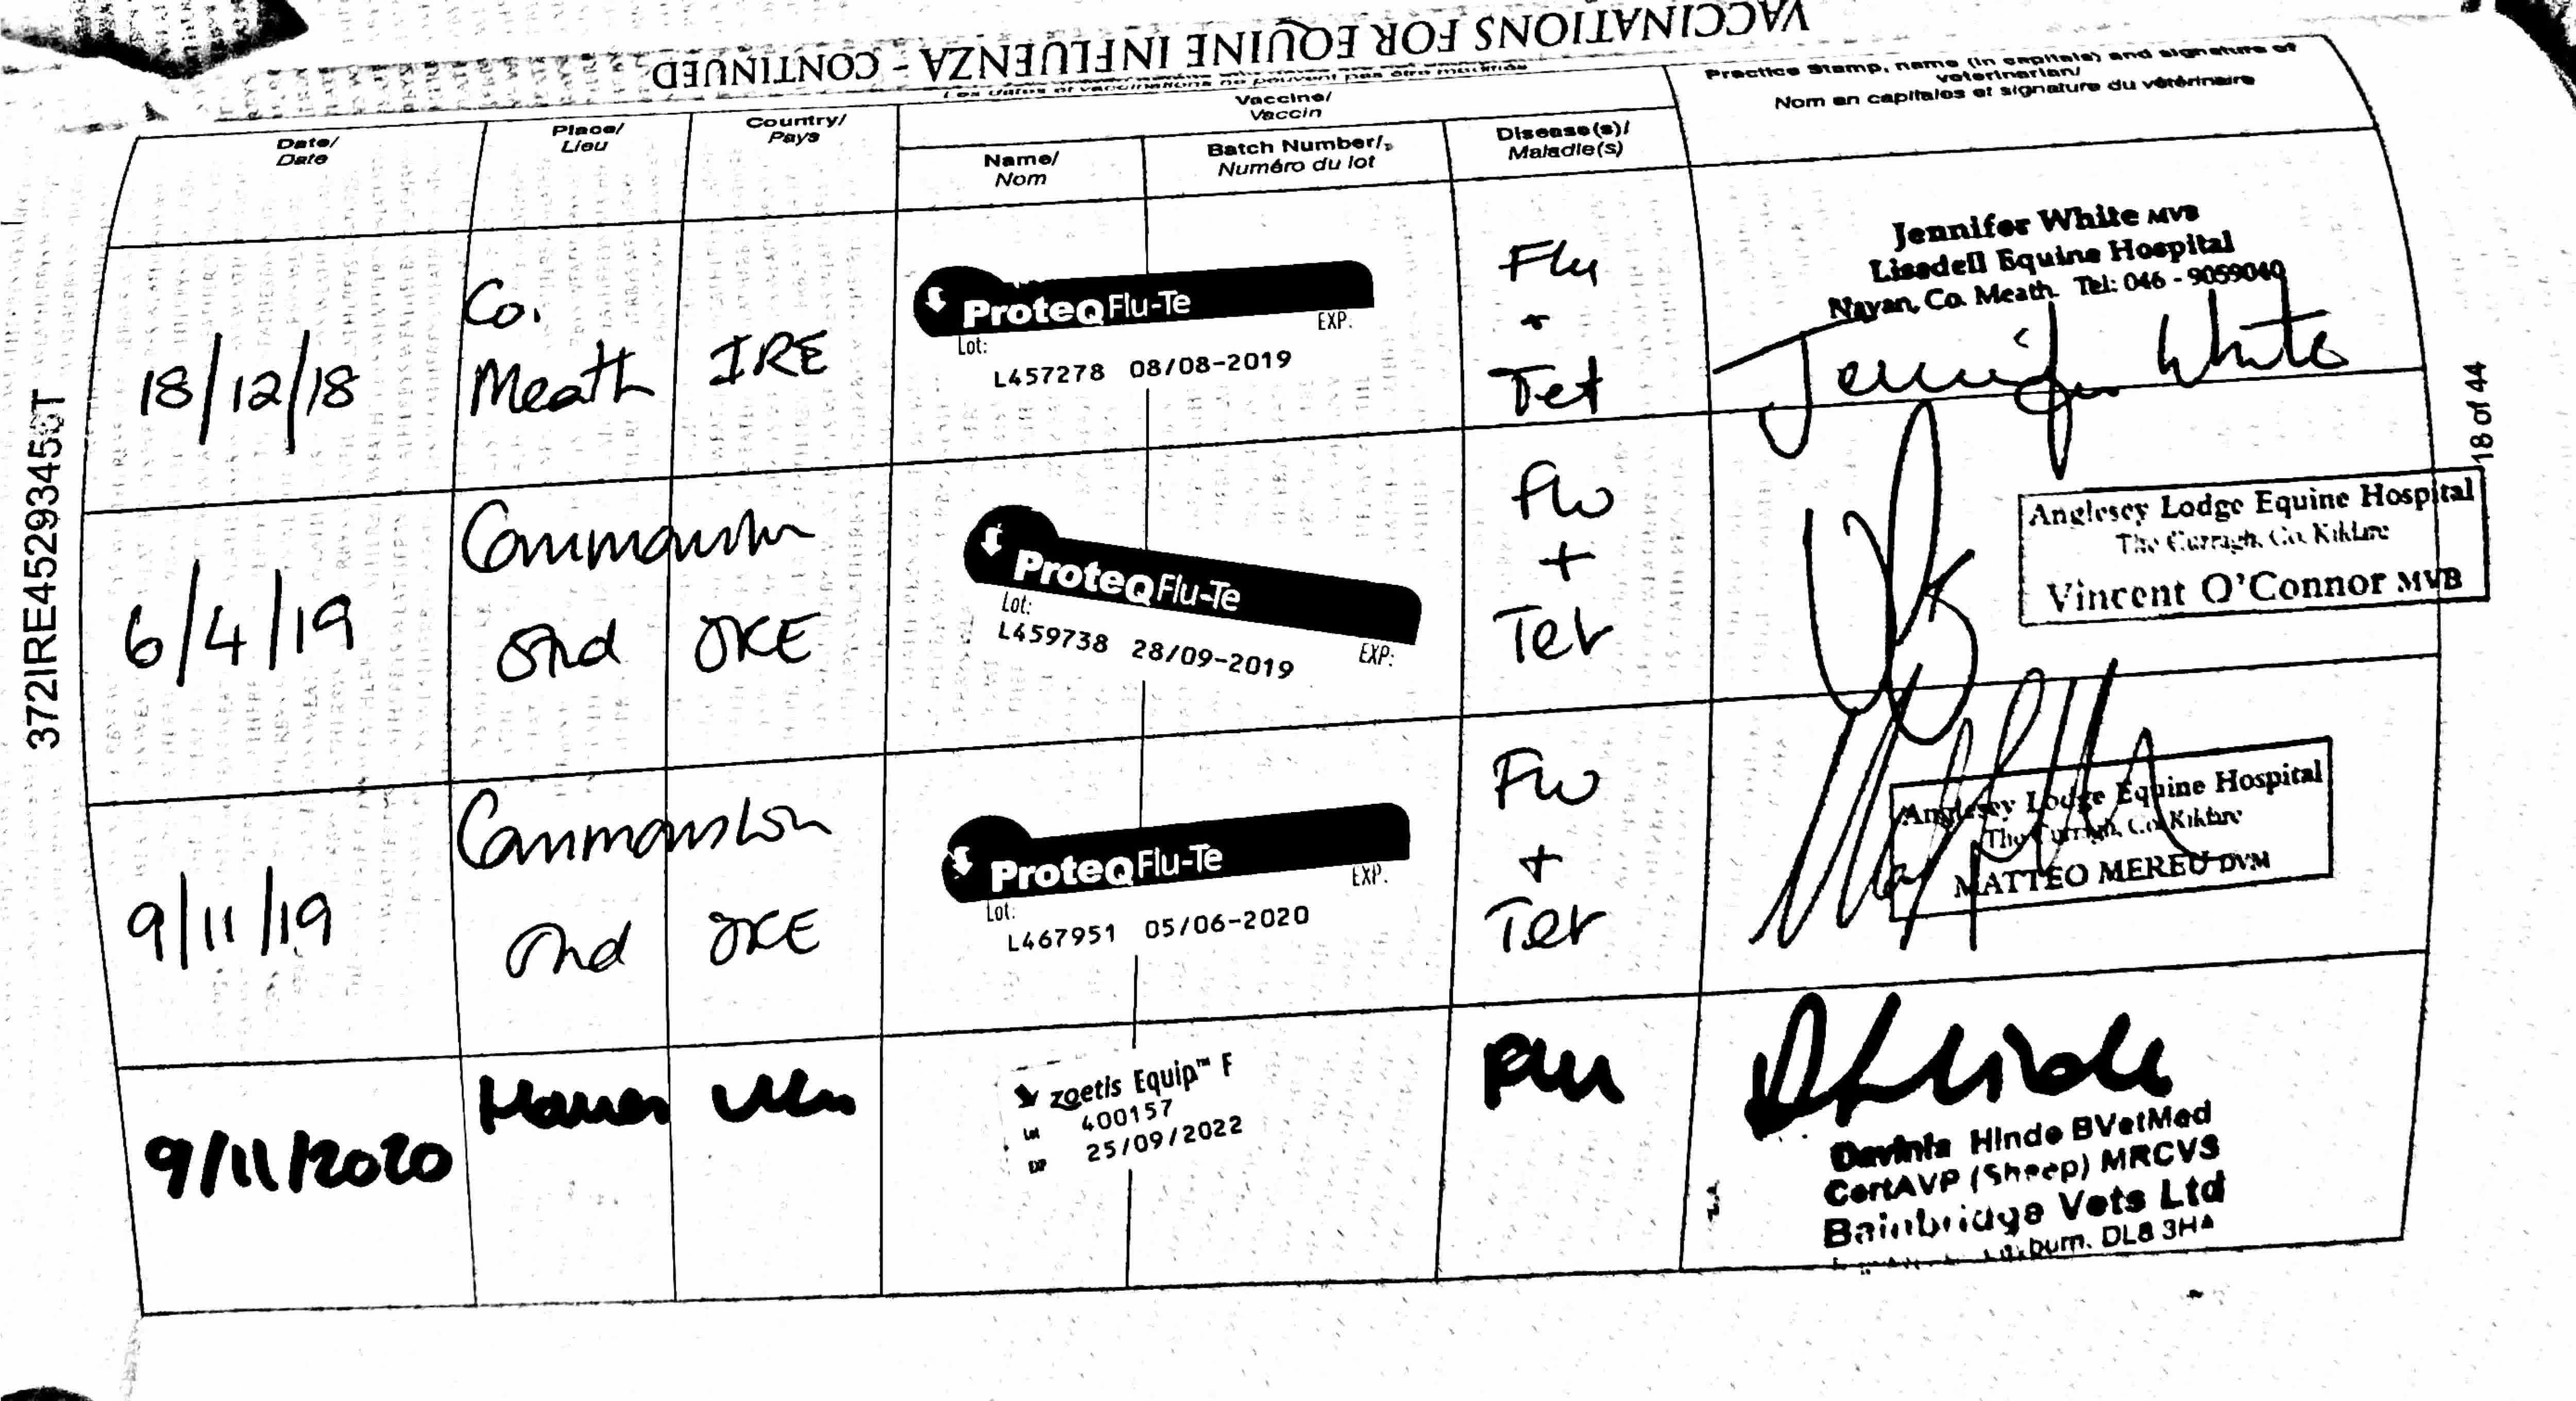 VACCINATIONS FOR EQUINE INFLUENZA - CONTINUED
Les dates et vaccinations ne peuvent pas être
Date/
Date
Place/
Lieu
Country/
Pays
Vaccine/
Vaccin
Name/
Nom
Batch Number/
Numéro du lot
Disease(s)/
Maladie(s)
Practice Stamp, name (in capitals) and signature of
veterinarian/
Nom en capitales et signature du vétérinaire
18/12/18
Co.
Meath
IRE
ProteqFlu-Te
Lot: EXP.
L457278 08/08-2019
Flu
+
Tet
Jennifer White MVB
Lisadell Equine Hospital
Navan, Co. Meath. Tel: 046 - 9059040
Jennifer White
6/4/19
Stnd
IRE
ProteqFlu-Te
Lot: EXP:
L459738 28/09-2019
Flu
+
Tet
Anglesey Lodge Equine Hospital
The Curragh, Co. Kildare
Vincent O'Connor MVB
9/11/19
Stnd
IRE
ProteqFlu-Te
Lot: EXP.
L467951 05/06-2020
Flu
+
Tet
Anglesey Lodge Equine Hospital
The Curragh, Co. Kildare
MATTEO MEREU DVM
9/11/2020
zoetis Equip™ F
Lot 400157
EXP 25/09/2022
Flu
Davinia Hinde BVetMed
CertAVP (Sheep) MRCVS
Bainbridge Vets Ltd
DL8 3HA
372IRE45293456T
18 of 44